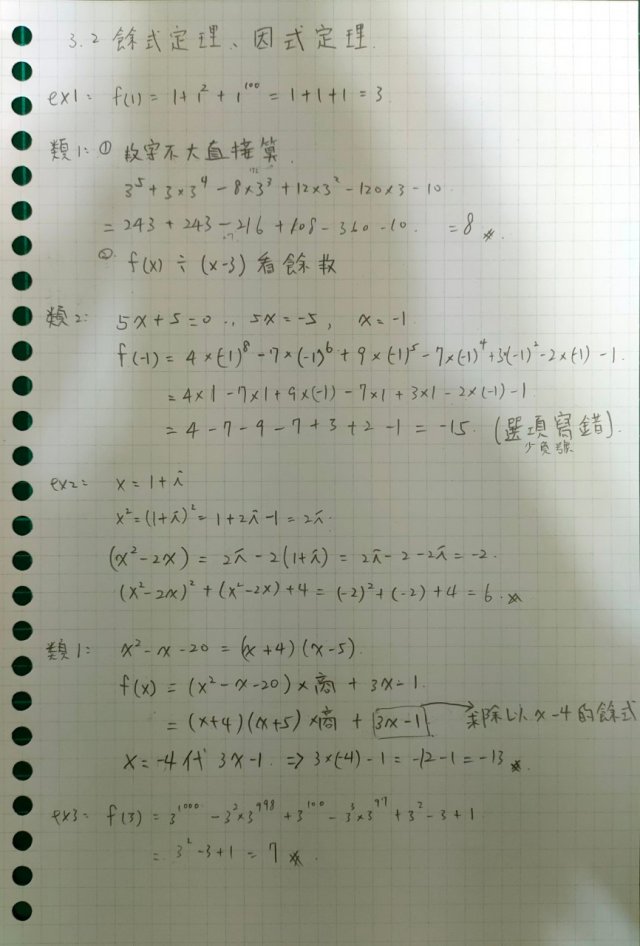 3.2 餘式定理、因式定理.
ex1: f(1) = 1+1²+1¹⁰⁰ = 1+1+1 = 3
類1: ① 數字不大直接算
3⁵ + 3×3⁴ - 8×3³ + 12×3² - 120×3 - 10
= 243 + 243 - 216 + 108 - 360 - 10. = 8
② f(x) ÷ (x-3) 看餘數
類2: 5x+5=0 ∴ 5x=-5, x=-1
f(-1) = 4×(-1)⁸ - 7×(-1)⁶ + 9×(-1)⁵ - 7×(-1)⁴ + 3×(-1)² - 2×(-1) - 1.
= 4×1 - 7×1 + 9×(-1) - 7×1 + 3×1 - 2×(-1) - 1
= 4 - 7 - 9 - 7 + 3 + 2 - 1 = -15. (選項寫錯).
少負號
ex2: x = 1+i
x² = (1+i)² = 1+2i-1 = 2i.
(x²-2x) = 2i-2(1+i) = 2i-2-2i = -2.
(x²-2x)² + (x²-2x) + 4 = (-2)² + (-2) + 4 = 6.
類1: x²-x-20 = (x+4)(x-5).
f(x) = (x²-x-20) × 商 + 3x-1.
= (x+4)(x+5) × 商 + 3x-1 → 求除以 x-4 的餘式
x = -4 代 3x-1. ⇒ 3×(-4)-1 = -12-1 = -13
ex3: f(3) = 3¹⁰⁰⁰ - 3²×3⁹⁹⁸ + 3¹⁰⁰ - 3³×3⁹⁷ + 3² - 3 + 1
= 3² - 3 + 1 = 7